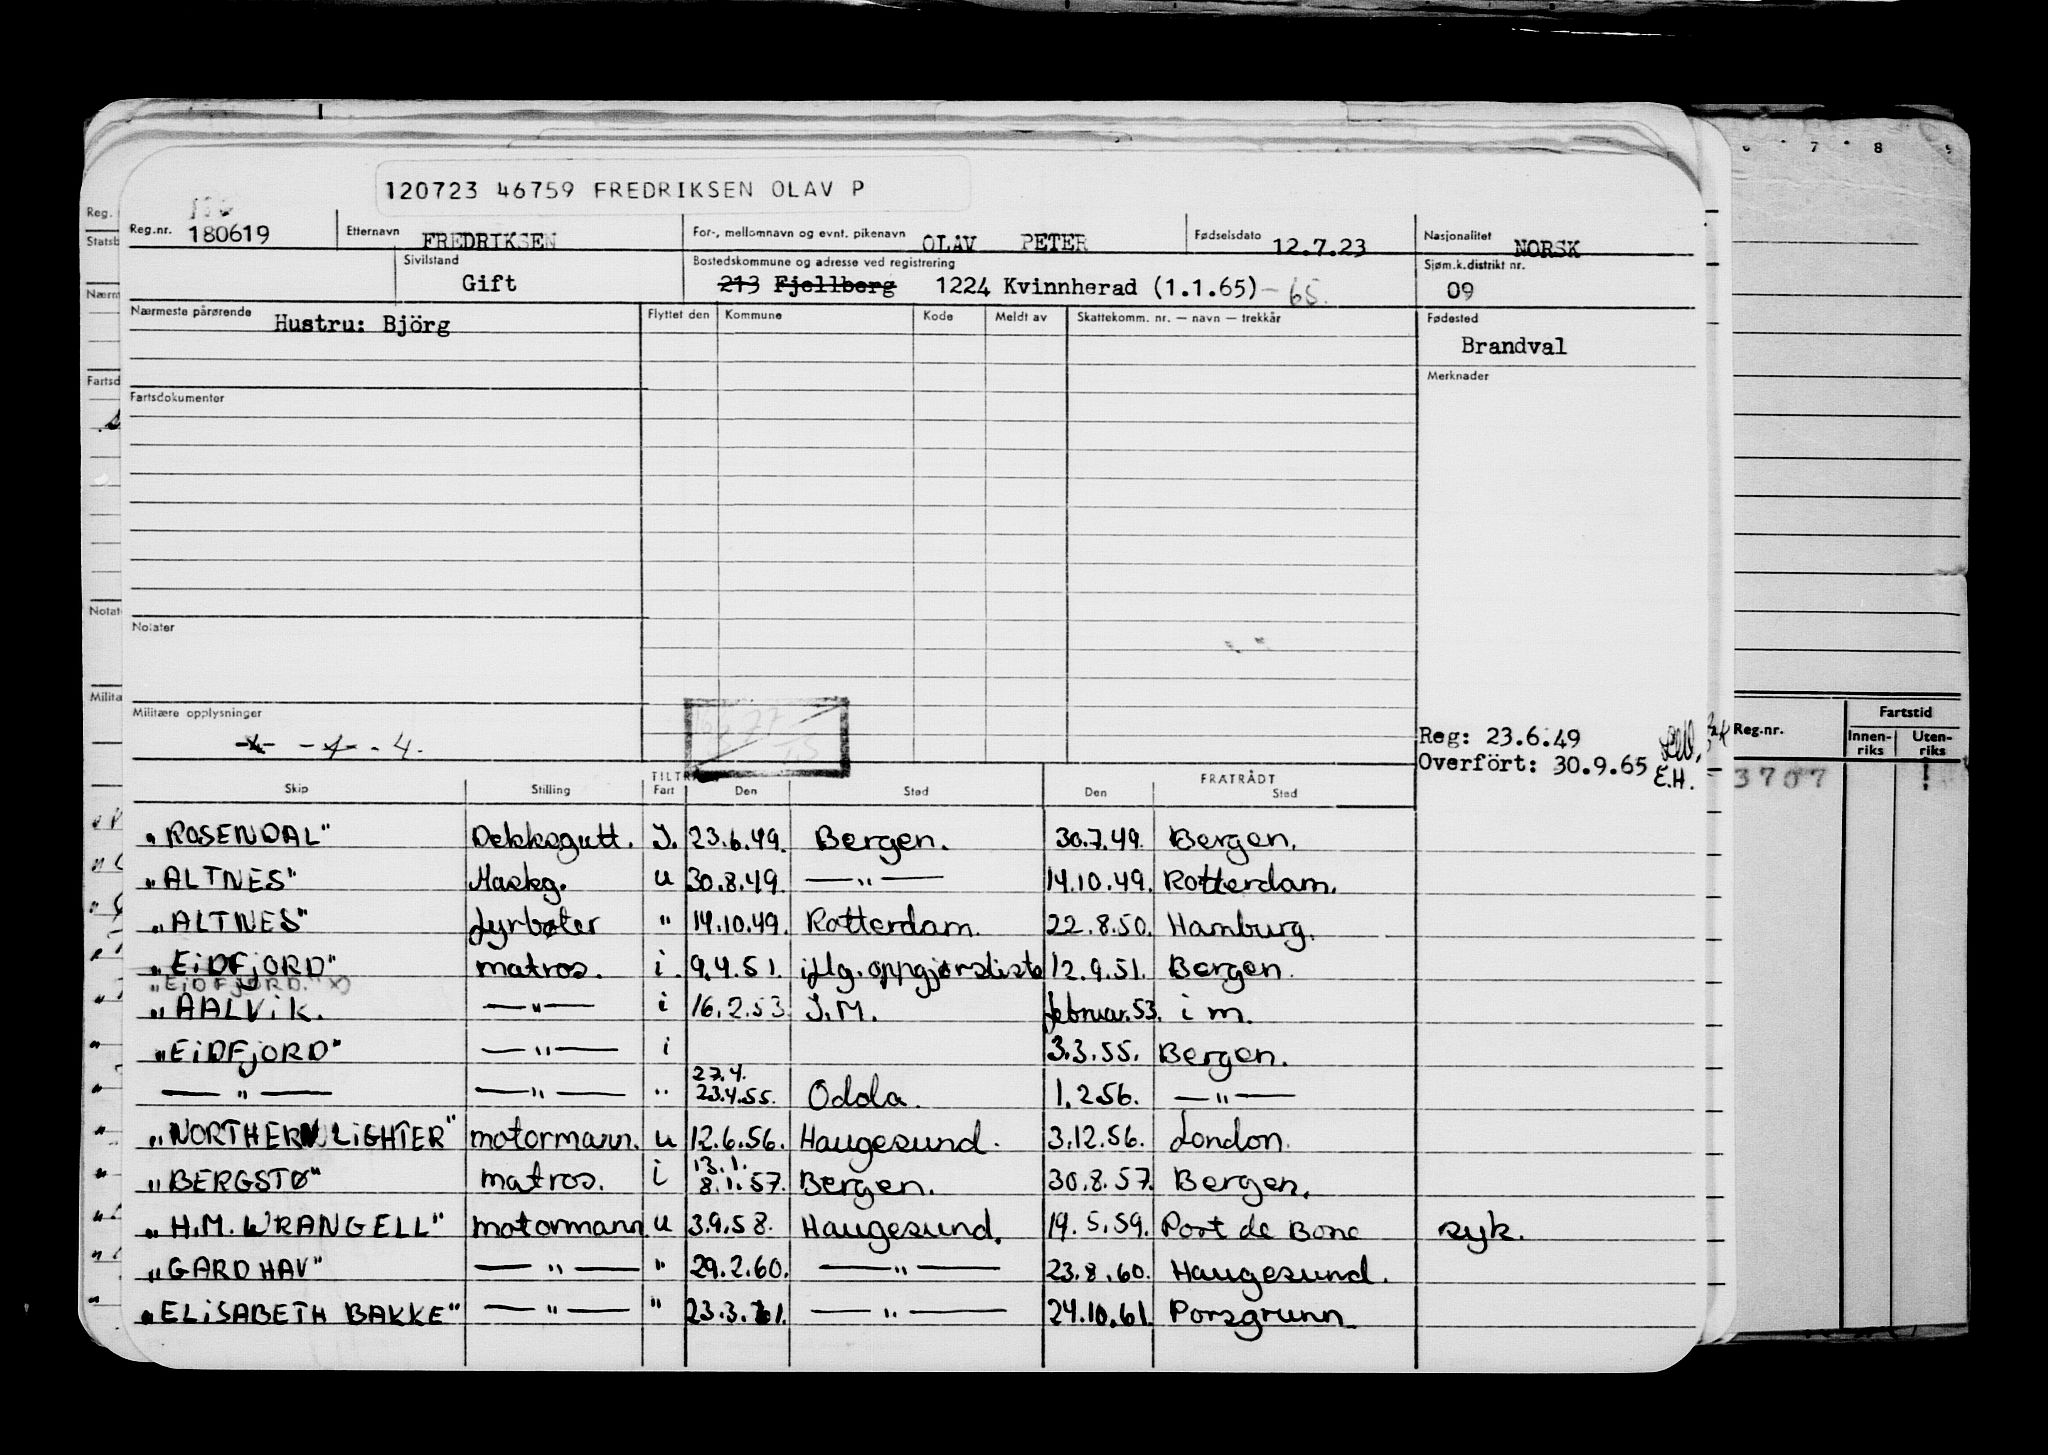 120723 46759 FREDRIKSEN OLAV P
Reg.nr. 180619 Etternavn FREDRIKSEN For-, mellomnavn og evnt. pikenavn OLAV PETER Fødselsdato 12.7.23 Nasjonalitet NORSK
Sivilstand Gift Bostedskommune og adresse ved registrering 213 Fjellberg 1224 Kvinnherad (1.1.65) - 65. Sjøm.k.distrikt nr. 09
Nærmeste pårørende Hustru: Björg Flyttet den Kommune Kode Meldt av Skattekomm. nr. — navn — trekkår Fødested
Brandval
Merknader
Fartsdokumenter
Notater
Militære opplysninger
-4- -4- - 4.
Reg: 23.6.49
Overfört: 30.9.65 E.H.
TILTR FRATRÅDT
Skip Stilling Fart Den Sted Den Sted
"ROSENDAL" Dekksgutt. I. 23.6.49. Bergen. 30.7.49. Bergen.
"ALTNES" Maskg. u 30.8.49. — " — 14.10.49. Rotterdam.
"ALTNES" fyrbøter " 14.10.49. Rotterdam. 22.8.50. Hamburg.
"EiDFjORD" matros. i. 9.4.51. iflg. oppgjørsliste 12.9.51. Bergen.
"EiDFjORD." x)
"AALViK. — " — i 16.2.53. I.M. februar.53. i m.
"EiDFjORD" — " — i 3.3.55. Bergen.
27.4.
— " — — " — " 23.4.55. Odda. 1.2.56. — " —
"NORTHERN LiGHTER" motormann. u 12.6.56. Haugesund. 3.12.56. London.
13.1.
"BERGSTØ" matros. i 8.1.57. Bergen. 30.8.57. Bergen.
"H.M. WRANGELL" motormann u 3.9.58. Haugesund. 19.5.59. Port de Bone syk.
"GARD HAV" — " — " 29.2.60. — " — 23.8.60. Haugesund.
"ELiSABETH BAKKE" — " — " 23.3.61. — " — 24.10.61. Porsgrunn.
Reg.
Statsb
Nærm
Fartsd
Notat
Milita
6 7 8
Reg.nr. Fartstid
Innen-riks Uten-riks
3707